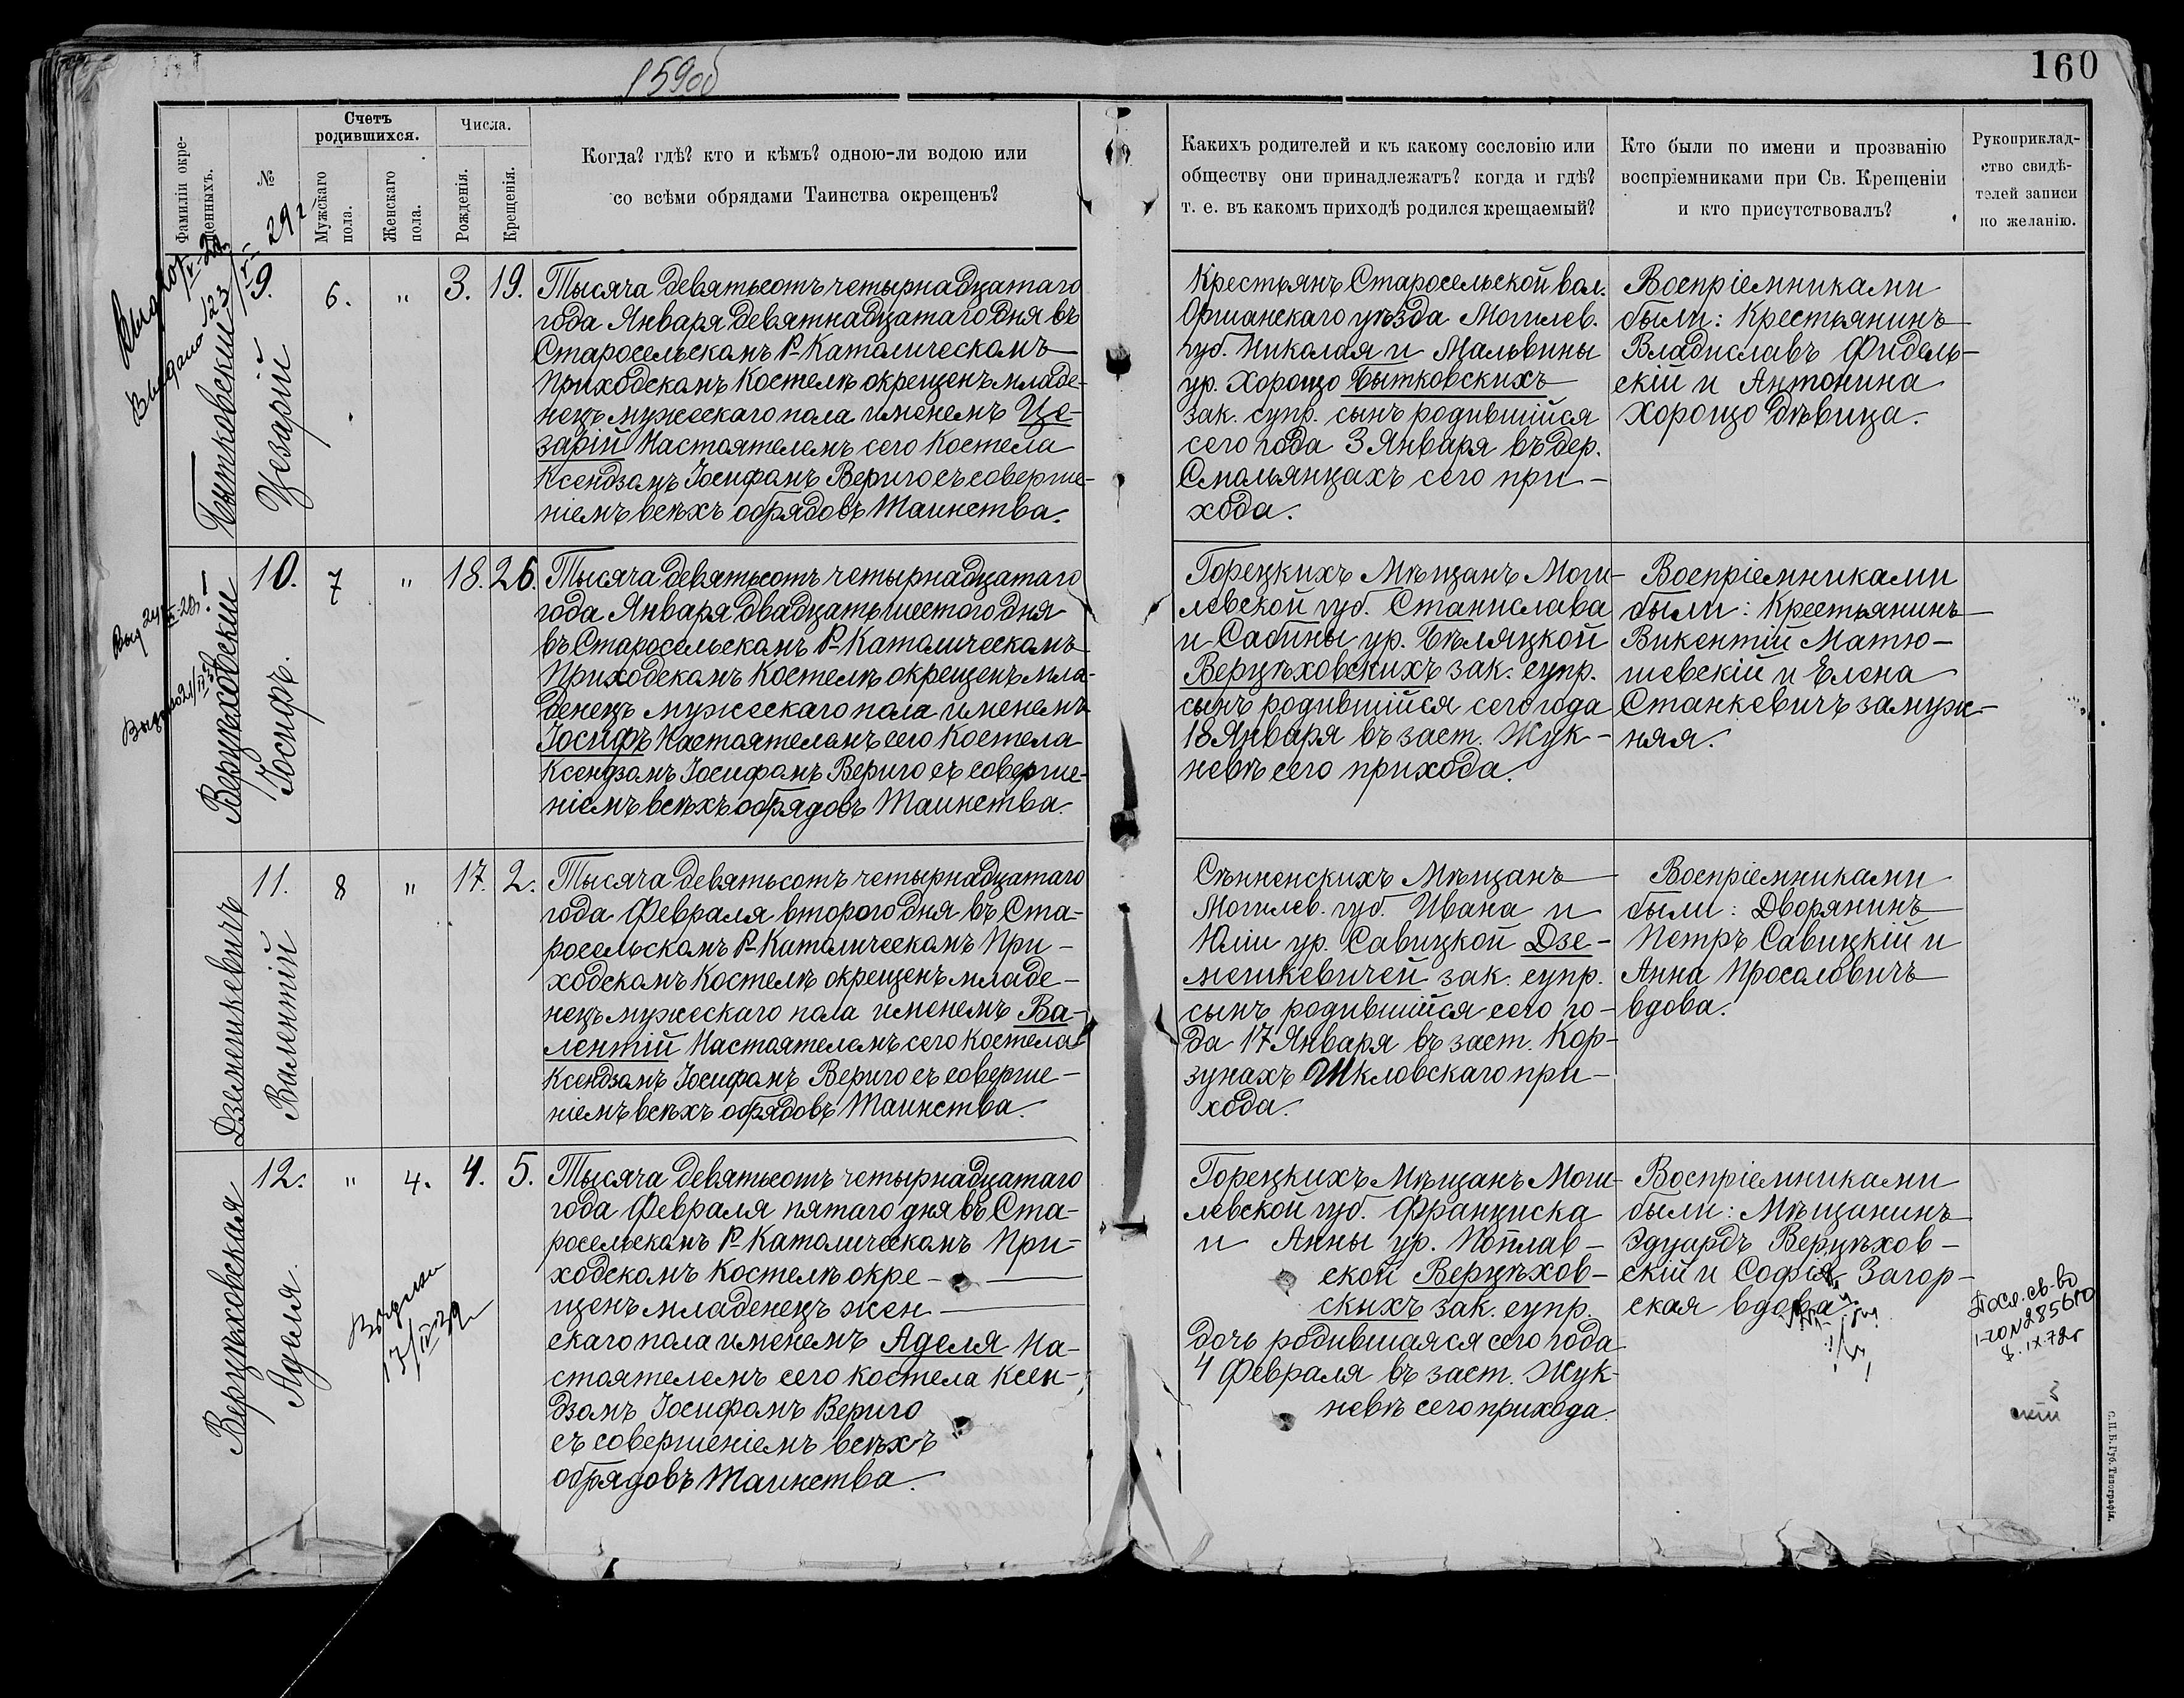 159об
160
Фамиліи окре-
щенныхъ.
№
Счетъ
родившихся.
Мужскаго
пола.
Женскаго
пола.
Числа.
Рожденія.
Крещенія.
Когда? гдѣ? кто и кѣмъ? одною-ли водою или
со всѣми обрядами Таинства окрещенъ?
Какихъ родителей и къ какому сословію или
обществу они принадлежатъ? когда и гдѣ?
т. е. въ какомъ приходѣ родился крещаемый?
Кто были по имени и прозванію
воспріемниками при Св. Крещеніи
и кто присутствовалъ?
Рукоприклад-
ство свидѣ-
телей записи
по желанію.
Выдано
Бытковскій
Цезарій
9.
6.
"
3.
19.
Тысяча девятьсотъ четырнадцатаго
года Января девятнадцатаго дня въ
Старосельскомъ Р-Католическомъ
Приходскомъ Костелѣ окрещенъ младе-
нецъ мужескаго пола именемъ Це-
зарій Настоятелемъ сего Костела
Ксендзомъ Іосифомъ Вериго съ соверше-
ніемъ всѣхъ обрядовъ Таинства.
Крестьянъ Старосельской вол.
Оршанскаго уѣзда Могилев.
губ. Николая и Мальвины
ур. Хорошо Бытковскихъ
зак. супр. сынъ родившійся
сего года 3 Января въ дер.
Смольянцахъ сего при-
хода.
Воспріемниками
были: Крестьянинъ
Владиславъ Фидель-
скій и Антонина
Хорошо дѣвица.
Верцѣховскій
Іосифъ.
10.
7
"
18.
26.
Тысяча девятьсотъ четырнадцатаго
года Января двадцать шестого дня
въ Старосельскомъ Р-Католическомъ
Приходскомъ Костелѣ окрещенъ мла-
денецъ мужескаго пола именемъ
Іосифъ Настоятелемъ сего Костела
Ксендзомъ Іосифомъ Вериго съ соверше-
ніемъ всѣхъ обрядовъ Таинства.
Горецкихъ Мѣщанъ Моги-
левской губ. Станислава
и Сабины ур. Бѣляцкой
Верцѣховскихъ зак. супр.
сынъ родившійся сего года
18 Января въ заст. Жук-
невѣ сего прихода.
Воспріемниками
были: Крестьянинъ
Викентій Матю-
шевскій и Елена
Станкевичъ замуж-
няя.
Дземешкевичъ
Валентій
11.
8
"
17.
2.
Тысяча девятьсотъ четырнадцатаго
года Февраля второго дня въ Ста-
росельскомъ Р-Католическомъ При-
ходскомъ Костелѣ окрещенъ младе-
нецъ мужескаго пола именемъ Ва-
лентій Настоятелемъ сего Костела
Ксендзомъ Іосифомъ Вериго съ соверше-
ніемъ всѣхъ обрядовъ Таинства.
Сѣнненскихъ Мѣщанъ
Могилев. губ. Ивана и
Юліи ур. Савицкой Дзе-
мешкевичей зак. супр.
сынъ родившійся сего го-
да 17 Января въ заст. Кор-
зунахъ Шкловскаго при-
хода.
Воспріемниками
были: Дворянинъ
Петръ Савицкій и
Анна Просоловичъ
вдова.
Верцѣховская
Аделя.
12.
"
4.
4.
5.
Тысяча девятьсотъ четырнадцатаго
года Февраля пятаго дня въ Ста-
росельскомъ Р-Католическомъ При-
ходскомъ Костелѣ окре-
щенъ младенецъ жен-
скаго пола именемъ Аделя На-
стоятелемъ сего Костела Ксен-
дзомъ Іосифомъ Вериго
съ совершеніемъ всѣхъ
обрядовъ Таинства.
Горецкихъ Мѣщанъ Моги-
левской губ. Франциска
и Анны ур. Поплав-
ской Верцѣхов-
скихъ зак. супр.
дочь родившаяся сего года
4 Февраля въ заст. Жук-
невѣ сего прихода.
Воспріемниками
были: Мѣщанинъ
Эдуардъ Верцѣхов-
скій и Софія Загор-
ская вдова.
С.П.Б. Губ. Типографія.